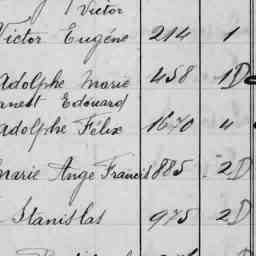 Victor
Victor Eugéne 214 1
Adolphe Marie 458 1D
Ernest Edouard
Adolphe Félix 1670 4
Marie Ange Francis 885 2D
Stanislas 975 2D